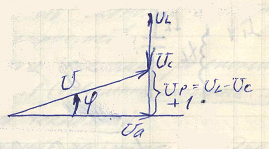 U_L
U_c
U
U_p = U_L - U_c
φ
+1
U_a